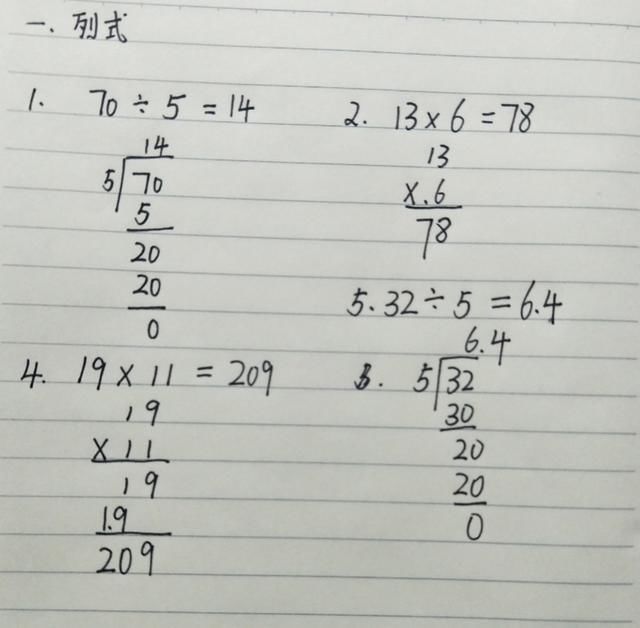 一. 列式
1. 70 ÷ 5 = 14
14
5 70
5
20
20
0
2. 13 × 6 = 78
13
×.6
78
4. 19 × 11 = 209
19
× 11
19
1.9
209
5. 32 ÷ 5 = 6.4
6.4
5 32
30
20
20
0